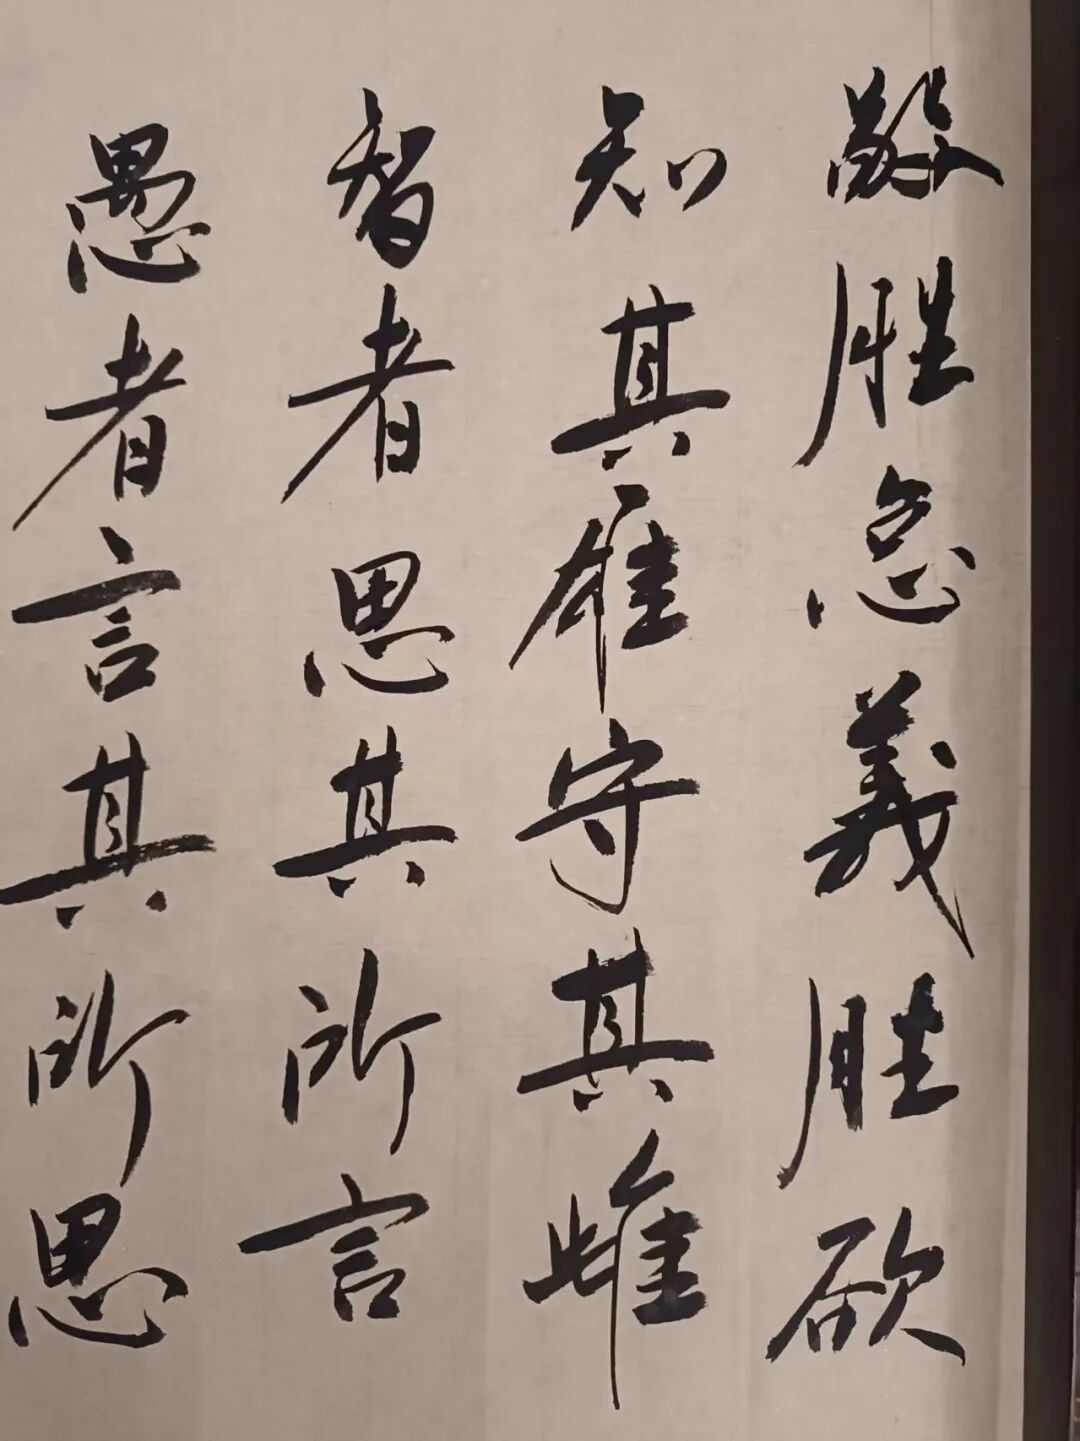 敬胜怠義胜欲
知其雄守其雌
智者思其所言
愚者言其所思